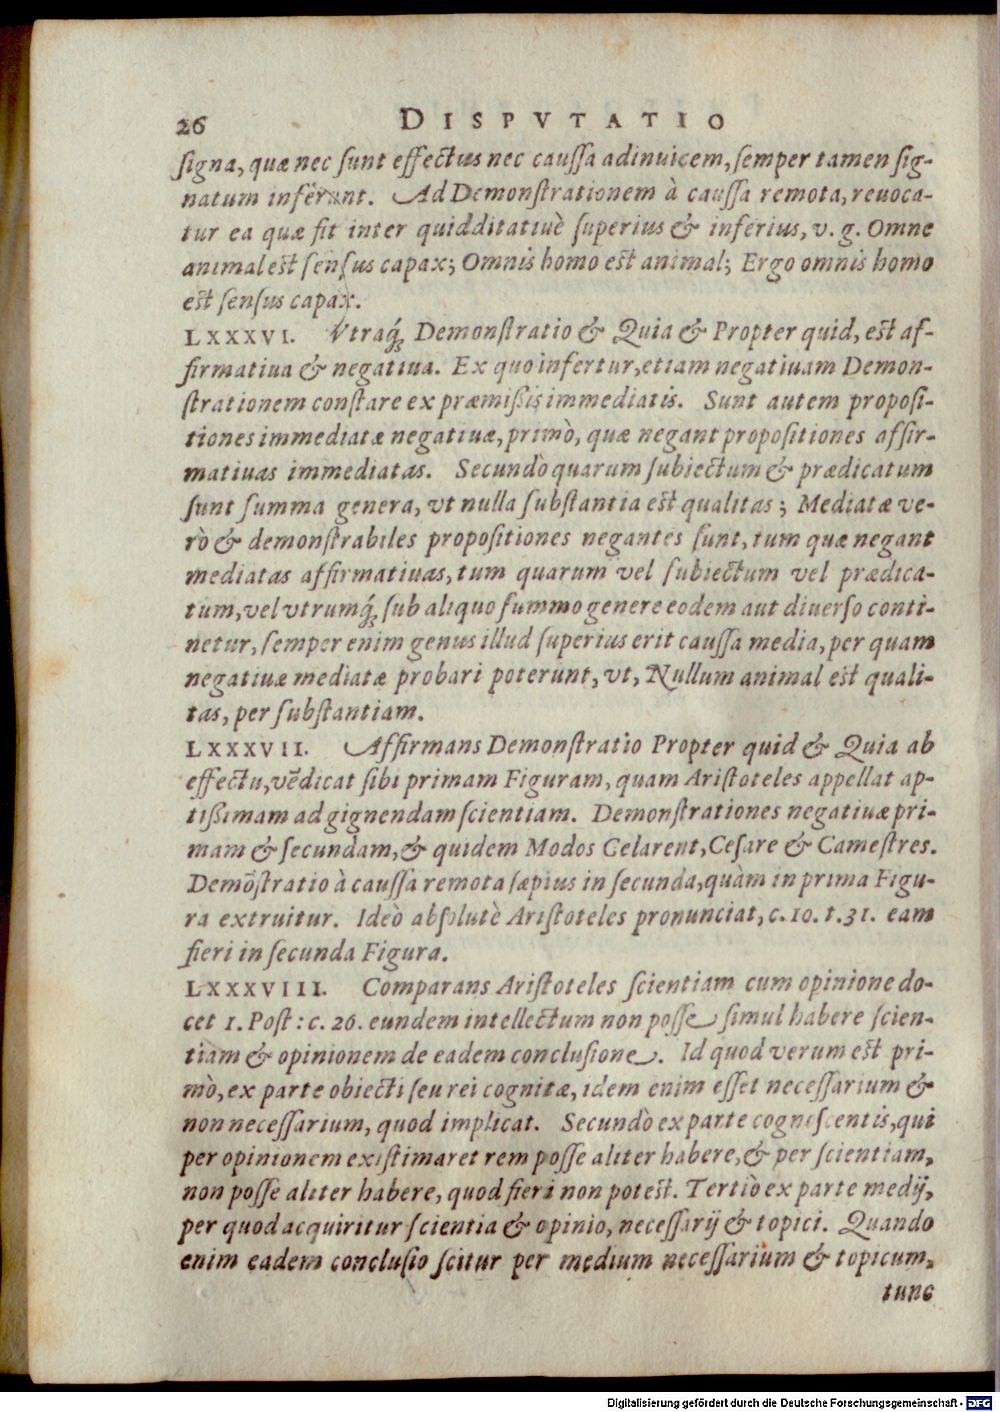 26 DISPVTATIO
signa, quæ nec sunt effectus nec caussa adinuicem, semper tamen sig-
natum inferunt. Ad Demonstrationem à caussa remota, reuoca-
tur ea quæ fit inter quidditatiuè superius & inferius, v. g. Omne
animal est sensus capax; Omnis homo est animal; Ergo omnis homo
est sensus capax.
LXXXVI. Vtraq́; Demonstratio & Quia & Propter quid, est af-
firmatiua & negatiua. Ex quo infertur, etiam negatiuam Demon-
strationem constare ex præmißis immediatis. Sunt autem proposi-
tiones immediatæ negatiuæ, primò, quæ negant propositiones affir-
matiuas immediatas. Secundò quarum subiectum & prædicatum
sunt summa genera, vt nulla substantia est qualitas; Mediatæ ve-
rò & demonstrabiles propositiones negantes sunt, tum quæ negant
mediatas affirmatiuas, tum quarum vel subiectum vel prædica-
tum, vel vtrumq́; sub aliquo summo genere eodem aut diuerso conti-
netur, semper enim genus illud superius erit caussa media, per quam
negatiuæ mediatæ probari poterunt, vt, Nullum animal est quali-
tas, per substantiam.
LXXXVII. Affirmans Demonstratio Propter quid & Quia ab
effectu, vēdicat sibi primam Figuram, quam Aristoteles appellat ap-
tißimam ad gignendam scientiam. Demonstrationes negatiuæ pri-
mam & secundam, & quidem Modos Celarent, Cesare & Camestres.
Demōstratio à caussa remota sæpius in secunda, quàm in prima Figu-
ra extruitur. Ideò absolutè Aristoteles pronunciat, c. 10. t. 31. eam
fieri in secunda Figura.
LXXXVIII. Comparans Aristoteles scientiam cum opinione do-
cet 1. Post: c. 26. eundem intellectum non posse simul habere scien-
tiam & opinionem de eadem conclusione. Id quod verum est pri-
mò, ex parte obiecti seu rei cognitæ, idem enim esset necessarium &
non necessarium, quod implicat. Secundò ex parte cognoscentis, qui
per opinionem existimaret rem posse aliter habere, & per scientiam,
non posse aliter habere, quod fieri non potest. Tertiò ex parte medij,
per quod acquiritur scientia & opinio, necessarij & topici. Quando
enim eadem conclusio scitur per medium necessarium & topicum,
tunc
Digitalisierung gefördert durch die Deutsche Forschungsgemeinschaft - DFG